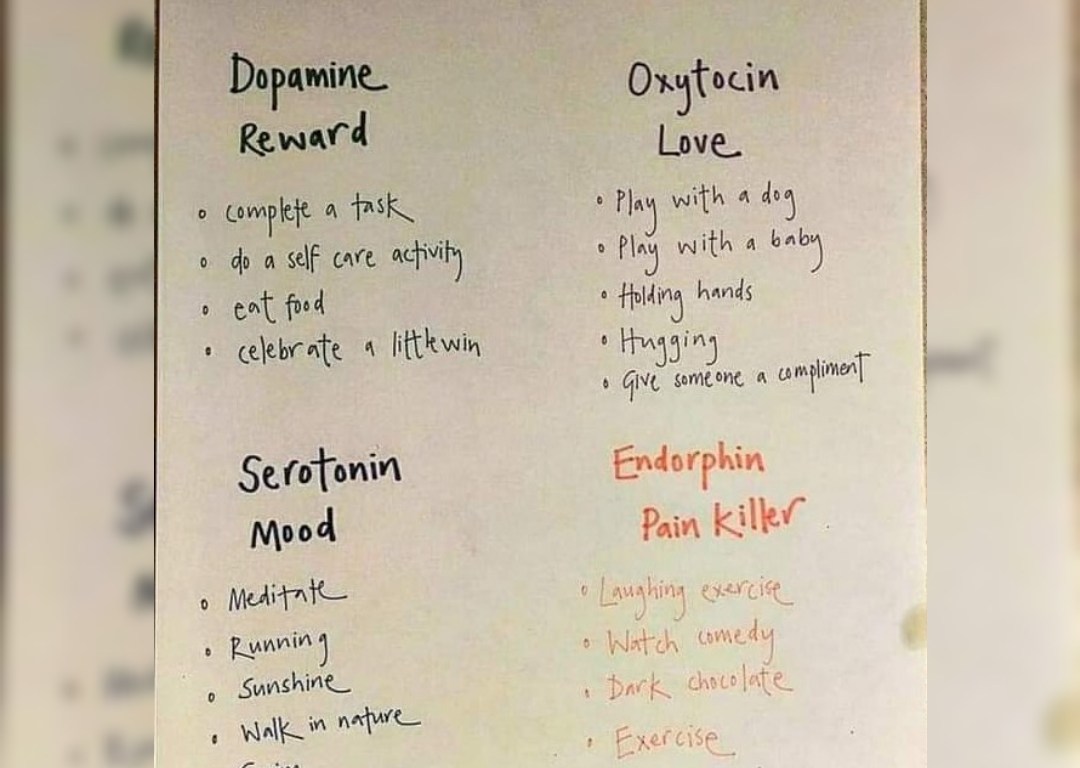 Dopamine
Reward
• complete a task
• do a self care activity
• eat food
• celebrate a little win
Oxytocin
Love
• Play with a dog
• Play with a baby
• Holding hands
• Hugging
• Give someone a compliment
Serotonin
Mood
• Meditate
• Running
• Sunshine
• Walk in nature
Endorphin
Pain Killer
• Laughing exercise
• Watch comedy
• Dark chocolate
• Exercise